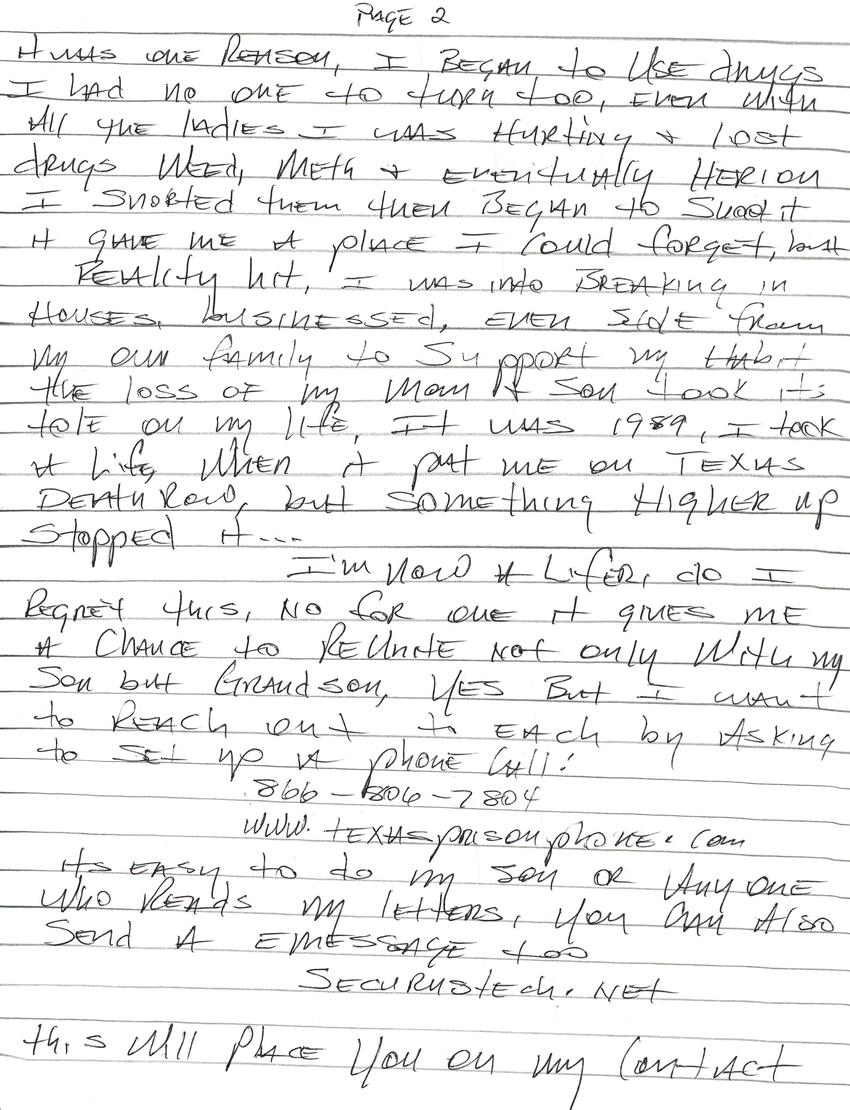 PAGE 2
It was one Reason, I Began to Use drugs
I had no one to turn too, even with
All the ladies I was Hurting & lost
drugs Weed, Meth & eventually Herion
I snorted them then Began to Shoot it
it gave me A place I could forget, but
Reality hit, I was into Breaking in
Houses, businessed, even from
my own family to Support my Habit
the loss of my Mom & Son took its
tole on my life, It was 1989, I took
A Life, When it put me on Texas
Death Row, but something Higher up
stopped it...
I'm now A Lifer, do I
Regret this, No for one it gives me
A Chance to ReUnite Not only With my
Son but Grandson, Yes But I want
to Reach out to Each by Asking
to set up A phone Call!
866-806-7804
www.texasprisonphone.com
its easy to do my son or Anyone
who Reads my letters, you can Also
Send A Emessage too
Securustech.Net
this Will Place You on my Contact